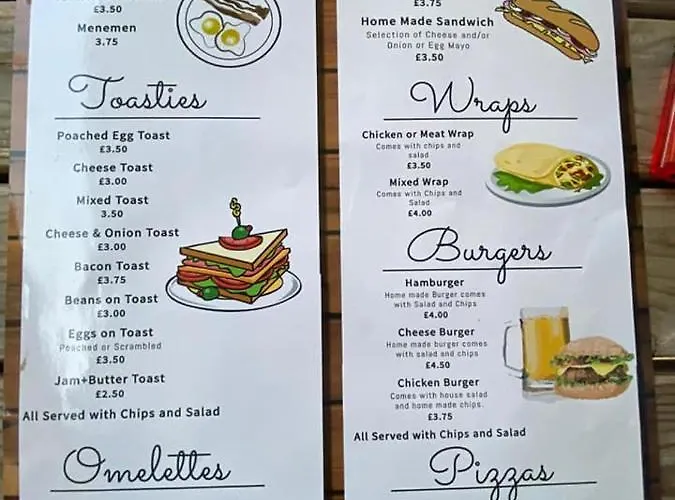 £3.50
Menemen
3.75
Toasties
Poached Egg Toast
£3.50
Cheese Toast
£3.00
Mixed Toast
3.50
Cheese & Onion Toast
£3.00
Bacon Toast
£3.75
Beans on Toast
£3.00
Eggs on Toast
Poached or Scrambled
£3.50
Jam+Butter Toast
£2.50
All Served with Chips and Salad
Omelettes
£3.75
Home Made Sandwich
Selection of Cheese and/or
Onion or Egg Mayo
£3.50
Wraps
Chicken or Meat Wrap
Comes with chips and
salad
£3.50
Mixed Wrap
Comes with Chips and
Salad
£4.00
Burgers
Hamburger
Home made Burger comes
with Salad and Chips
£4.00
Cheese Burger
Home made burger comes
with salad and chips
£4.50
Chicken Burger
Comes with house salad
and home made chips.
£3.75
All Served with Chips and Salad
Pizzas